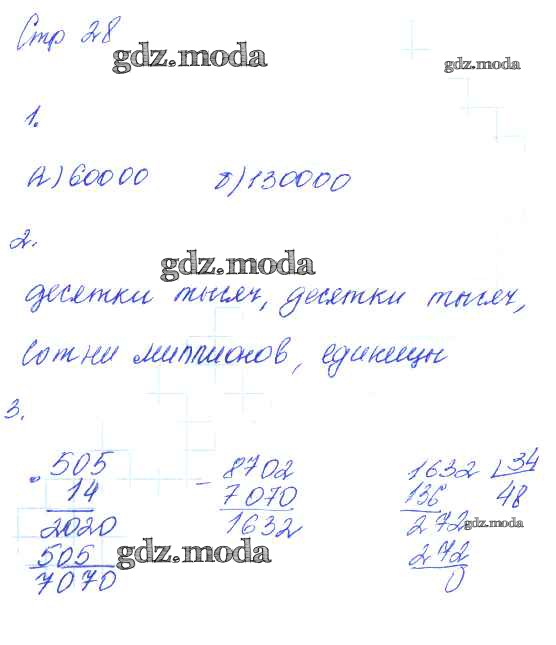 Стр 28
gdz.moda
gdz.moda
1.
а) 60000 б) 130000
2.
gdz.moda
десятки тысяч, десятки тысяч,
сотни миллионов, единицы
3.
505
14
2020
505
7070
- 8702
7070
1632
1632 34
136 48
272
272
0
gdz.moda
gdz.moda